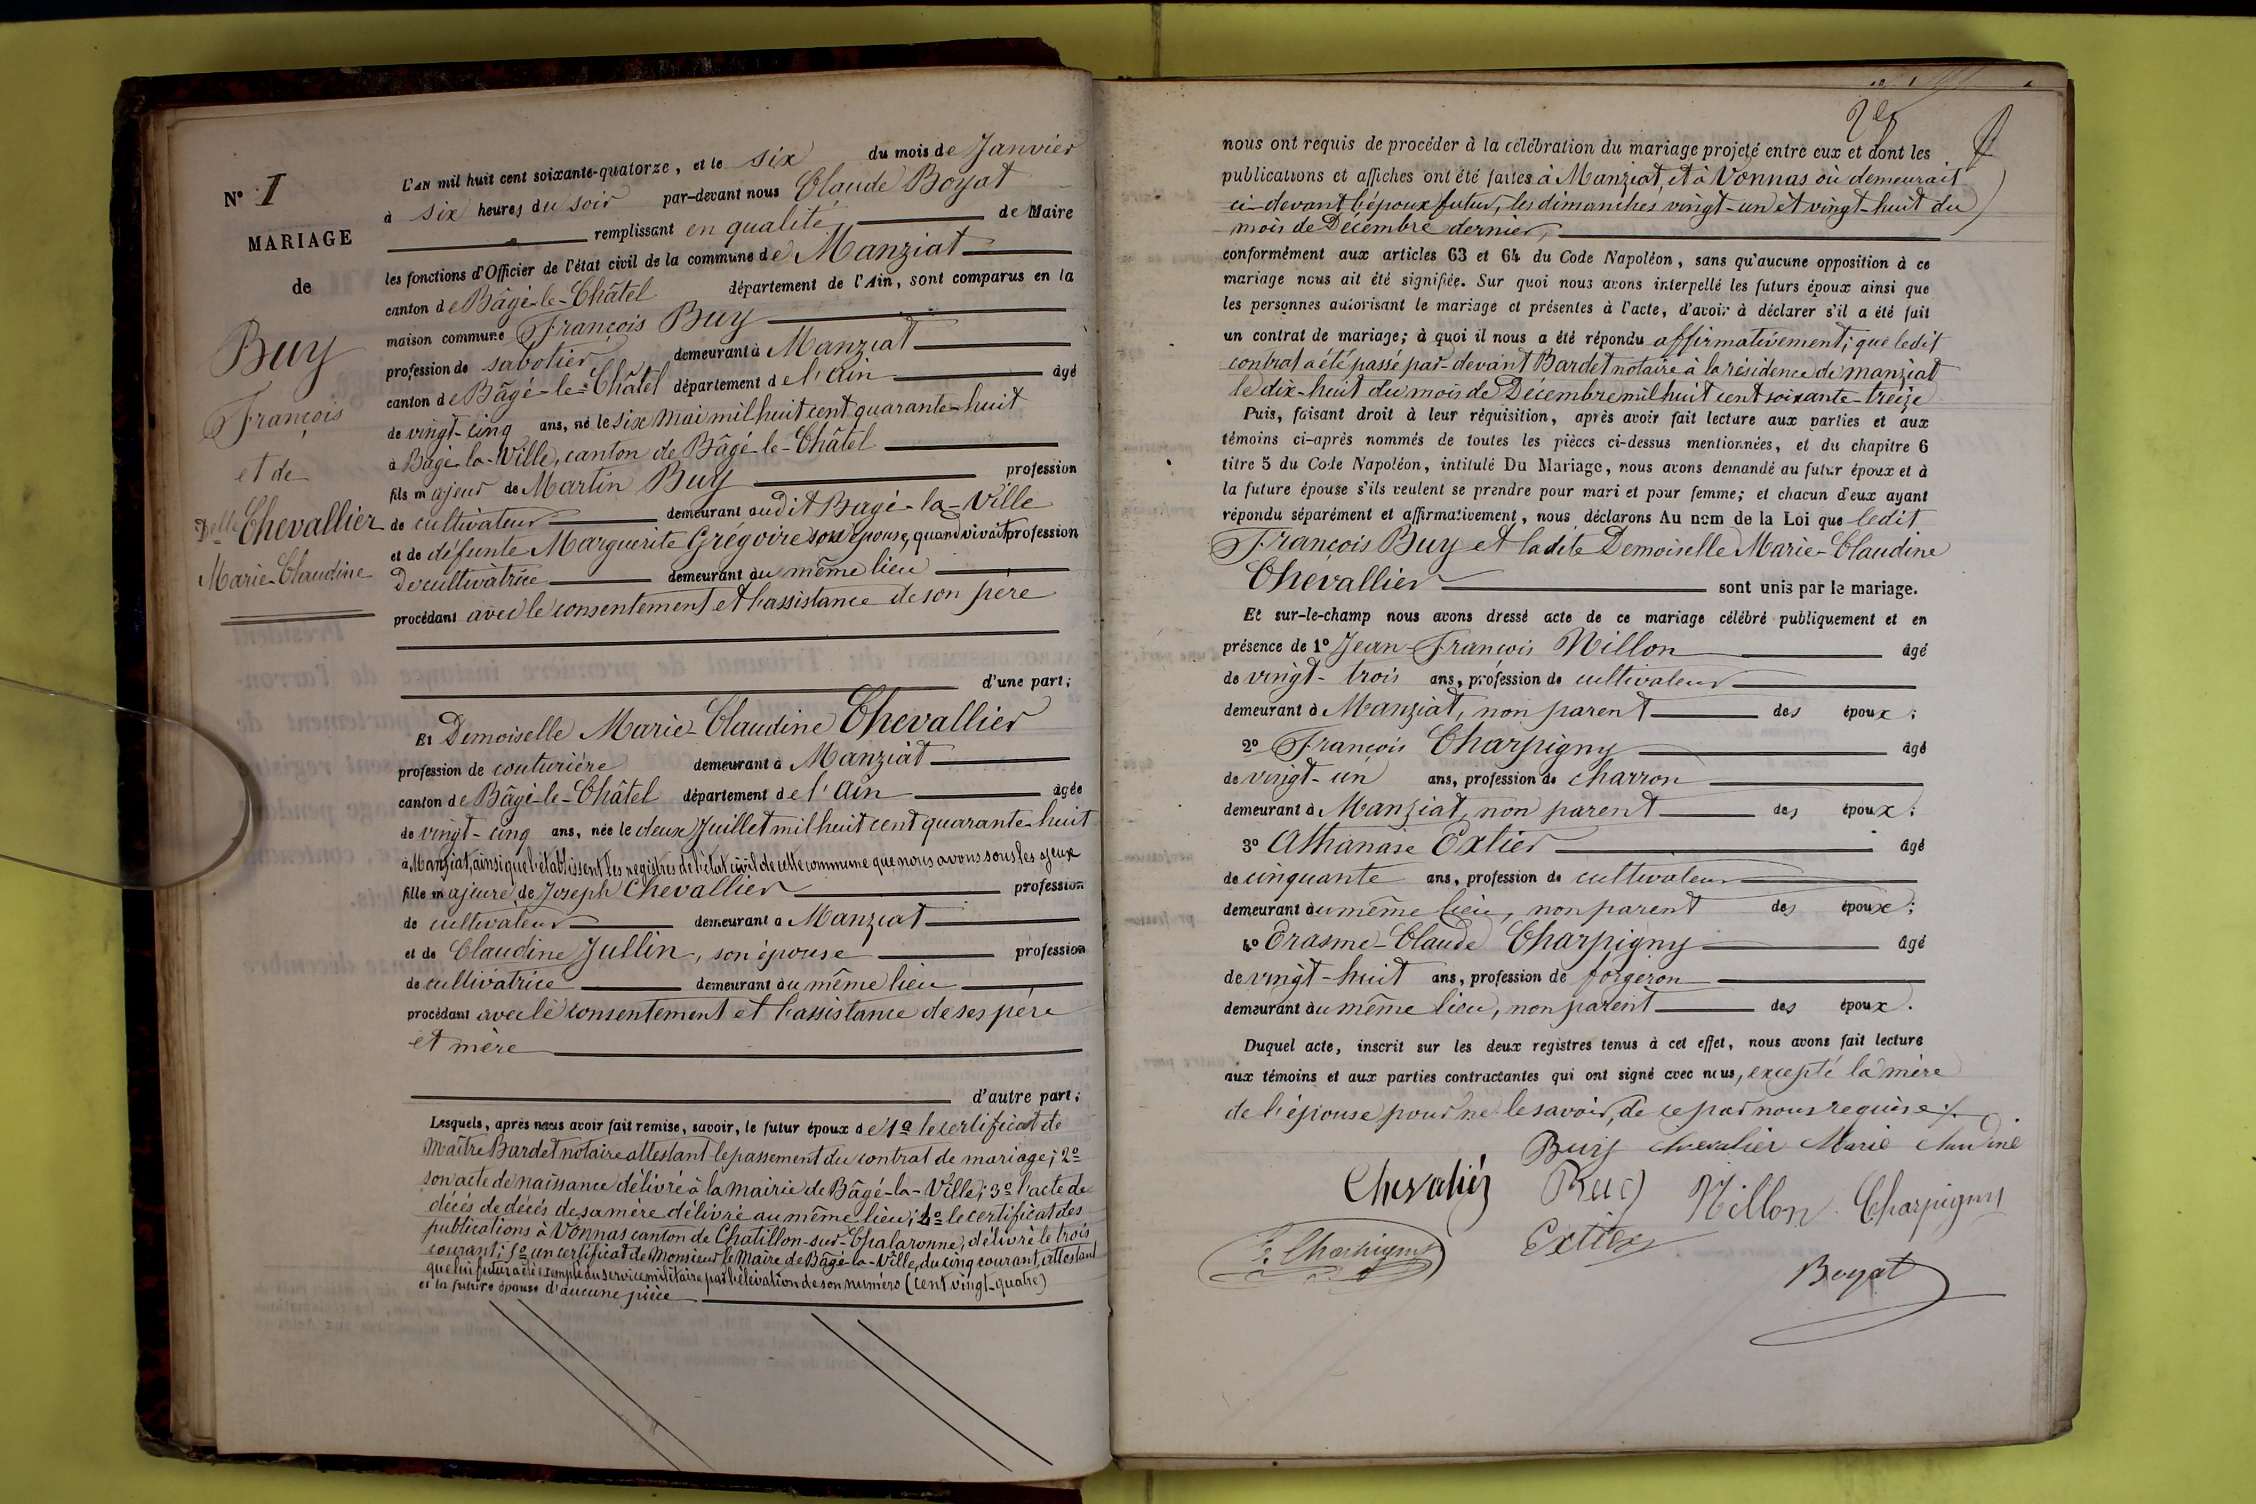 N° 1
MARIAGE
de
Buy
François
et de
Delle Chevallier
Marie-Claudine
L'AN mil huit cent soixante-quatorze, et le six du mois de Janvier
à six heures du soir par-devant nous Claude Boyat
remplissant en qualité de Maire
les fonctions d'Officier de l'état civil de la commune de Manziat
canton de Bâgé-le-Châtel département de l'Ain, sont comparus en la
maison commune François Buy
profession de sabotier demeurant à Manziat
canton de Bâgé-le-Châtel département de l'Ain âgé
de vingt-cinq ans, né le six mai mil huit cent quarante-huit
à Bâgé-la-Ville, canton de Bâgé-le-Châtel
fils majeur de Martin Buy profession
de cultivateur demeurant audit Bagé-la-Ville
et de défunte Marguerite Grégoire son épouse, quand vivait profession
De cultivatrice demeurant au même lieu
procédant avec le consentement et l'assistance de son père
d'une part;
Et Demoiselle Marie-Claudine Chevallier
profession de couturière demeurant à Manziat
canton de Bâgé-le-Châtel département de l'Ain âgée
de vingt-cinq ans, née le deux Juillet mil huit cent quarante-huit
à Manziat, ainsi que l'établissent les registres de l'état civil de cette commune que nous avons sous les yeux
fille majeure de Joseph Chevallier profession
de cultivateur demeurant à Manziat
et de Claudine Jullin, son épouse profession
de cultivatrice demeurant au même lieu
procédant avec le consentement et l'assistance de ses père
et mère
d'autre part;
Lesquels, après nous avoir fait remise, savoir, le futur époux de 1º le certificat de
Maître Bardet notaire attestant le passement du contrat de mariage; 2º
son acte de naissance délivré à la mairie de Bâgé-la-Ville; 3º l'acte de
décés de décés de sa mère délivré au même lieu; 4º le certificat des
publications à Vonnas canton de Chatillon-sur-Chalaronne, délivré le trois
courant; 5º un certificat de Monsieur le Maire de Bâgé-la-Ville, du cinq courant, attestant
que lui futur a été exempté du service militaire par l'élévation de son numéro (cent vingt-quatre)
et la future épouse d'aucune pièce
nous ont requis de procéder à la célébration du mariage projeté entre eux et dont les
publications et affiches ont été faites à Manziat, et à Vonnas où demeurait
ci-devant l'époux futur, les dimanches vingt-un et vingt-huit du
mois de Décembre dernier,
conformément aux articles 63 et 64 du Code Napoléon, sans qu'aucune opposition à ce
mariage nous ait été signifiée. Sur quoi nous avons interpellé les futurs époux ainsi que
les personnes autorisant le mariage et présentes à l'acte, d'avoir à déclarer s'il a été fait
un contrat de mariage; à quoi il nous a été répondu affirmativement; que ledit
contrat a été passé par-devant Bardet notaire à la résidence de manziat
le dix-huit du mois de Décembre mil huit cent soixante-treize
Puis, faisant droit à leur réquisition, après avoir fait lecture aux parties et aux
témoins ci-après nommés de toutes les pièces ci-dessus mentionnées, et du chapitre 6
titre 5 du Code Napoléon, intitulé Du Mariage, nous avons demandé au futur époux et à
la future épouse s'ils veulent se prendre pour mari et pour femme; et chacun d'eux ayant
répondu séparément et affirmativement, nous déclarons Au nom de la Loi que ledit
François Buy et ladite Demoiselle Marie-Claudine
Chevallier sont unis par le mariage.
Et sur-le-champ nous avons dressé acte de ce mariage célébré publiquement et en
présence de 1º Jean-François Nillon âgé
de vingt-trois ans, profession de cultivateur
demeurant à Manziat, non parent des époux;
2º François Charpigny âgé
de vingt-un ans, profession de charron
demeurant à Manziat, non parent des époux;
3º Athanase Extier âgé
de cinquante ans, profession de cultivateur
demeurant au même lieu, non parent des époux;
4º Erasme-Claude Charpigny âgé
de vingt-huit ans, profession de forgeron
demeurant au même lieu, non parent des époux.
Duquel acte, inscrit sur les deux registres tenus à cet effet, nous avons fait lecture
aux témoins et aux parties contractantes qui ont signé avec nous, excepté la mère
de l'épouse pour ne le savoir, de ce par nous requise.
Buy chevalier Marie claudine
Chevalier Buy Nillon Charpigny
F. Charpigny Extier
Boyat